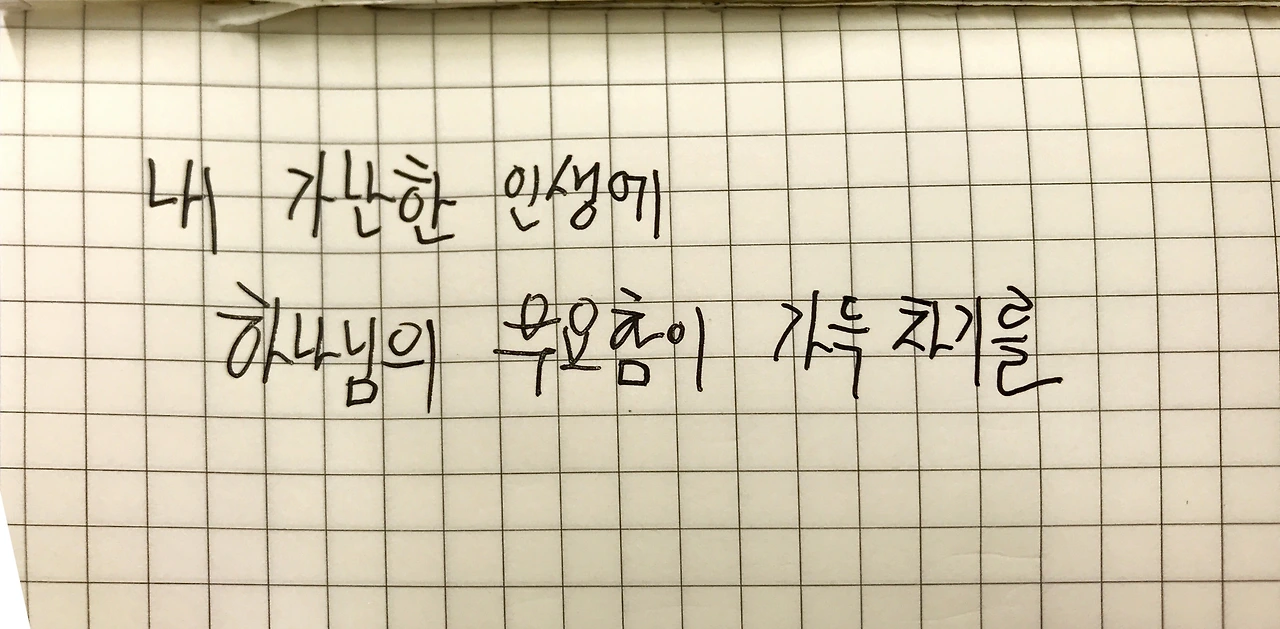 내 가난한 인생에
하나님의 부요함이 가득 차기를